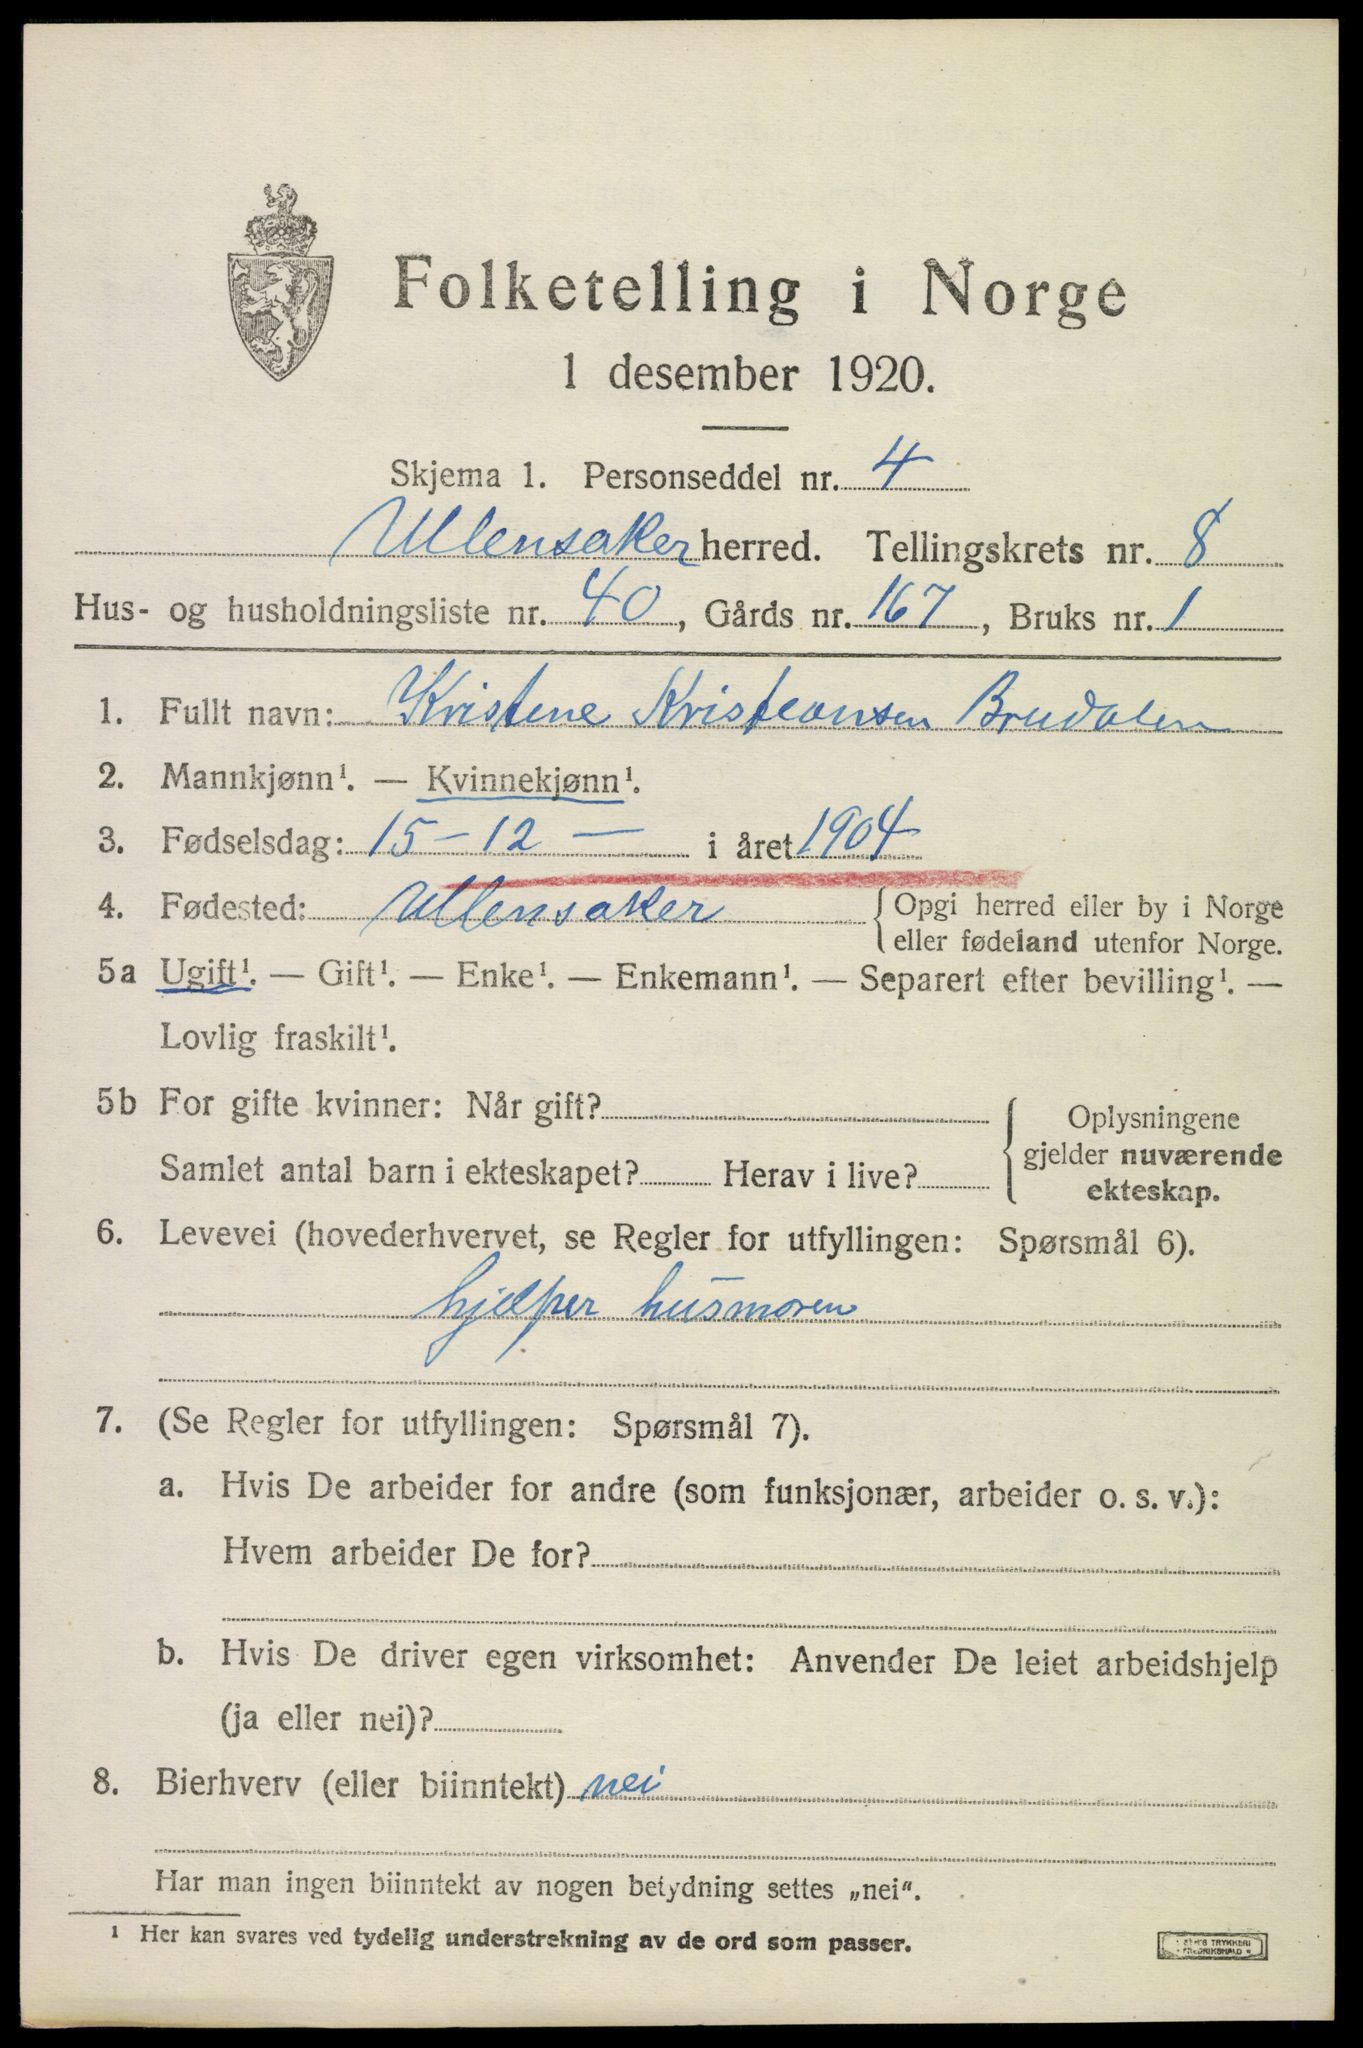 Folketelling i Norge
1 desember 1920.
Skjema 1. Personseddel nr. 4
Ullensaker herred. Tellingskrets nr. 8
Hus- og husholdningsliste nr. 40, Gårds nr. 167, Bruks nr. 1
1. Fullt navn: Kristine Kristiansen Brudalen
2. Mannkjønn¹. — Kvinnekjønn¹.
3. Fødselsdag: 15 - 12 — i året 1904
4. Fødested: Ullensaker { Opgi herred eller by i Norge
eller fødeland utenfor Norge.
5a Ugift¹. — Gift¹. — Enke¹. — Enkemann¹. — Separert efter bevilling¹. —
Lovlig fraskilt¹.
5b For gifte kvinner: Når gift?
Samlet antal barn i ekteskapet? Herav i live?
Oplysningene
gjelder nuværende
ekteskap.
6. Levevei (hovederhvervet, se Regler for utfyllingen: Spørsmål 6).
hjelper husmoren
7. (Se Regler for utfyllingen: Spørsmål 7).
a. Hvis De arbeider for andre (som funksjonær, arbeider o. s. v.):
Hvem arbeider De for?
b. Hvis De driver egen virksomhet: Anvender De leiet arbeidshjelp
(ja eller nei)?
8. Bierhverv (eller biinntekt) nei
Har man ingen biinntekt av nogen betydning settes „nei“.
¹ Her kan svares ved tydelig understrekning av de ord som passer.
TRYKKERI
FREDRIKSHALD